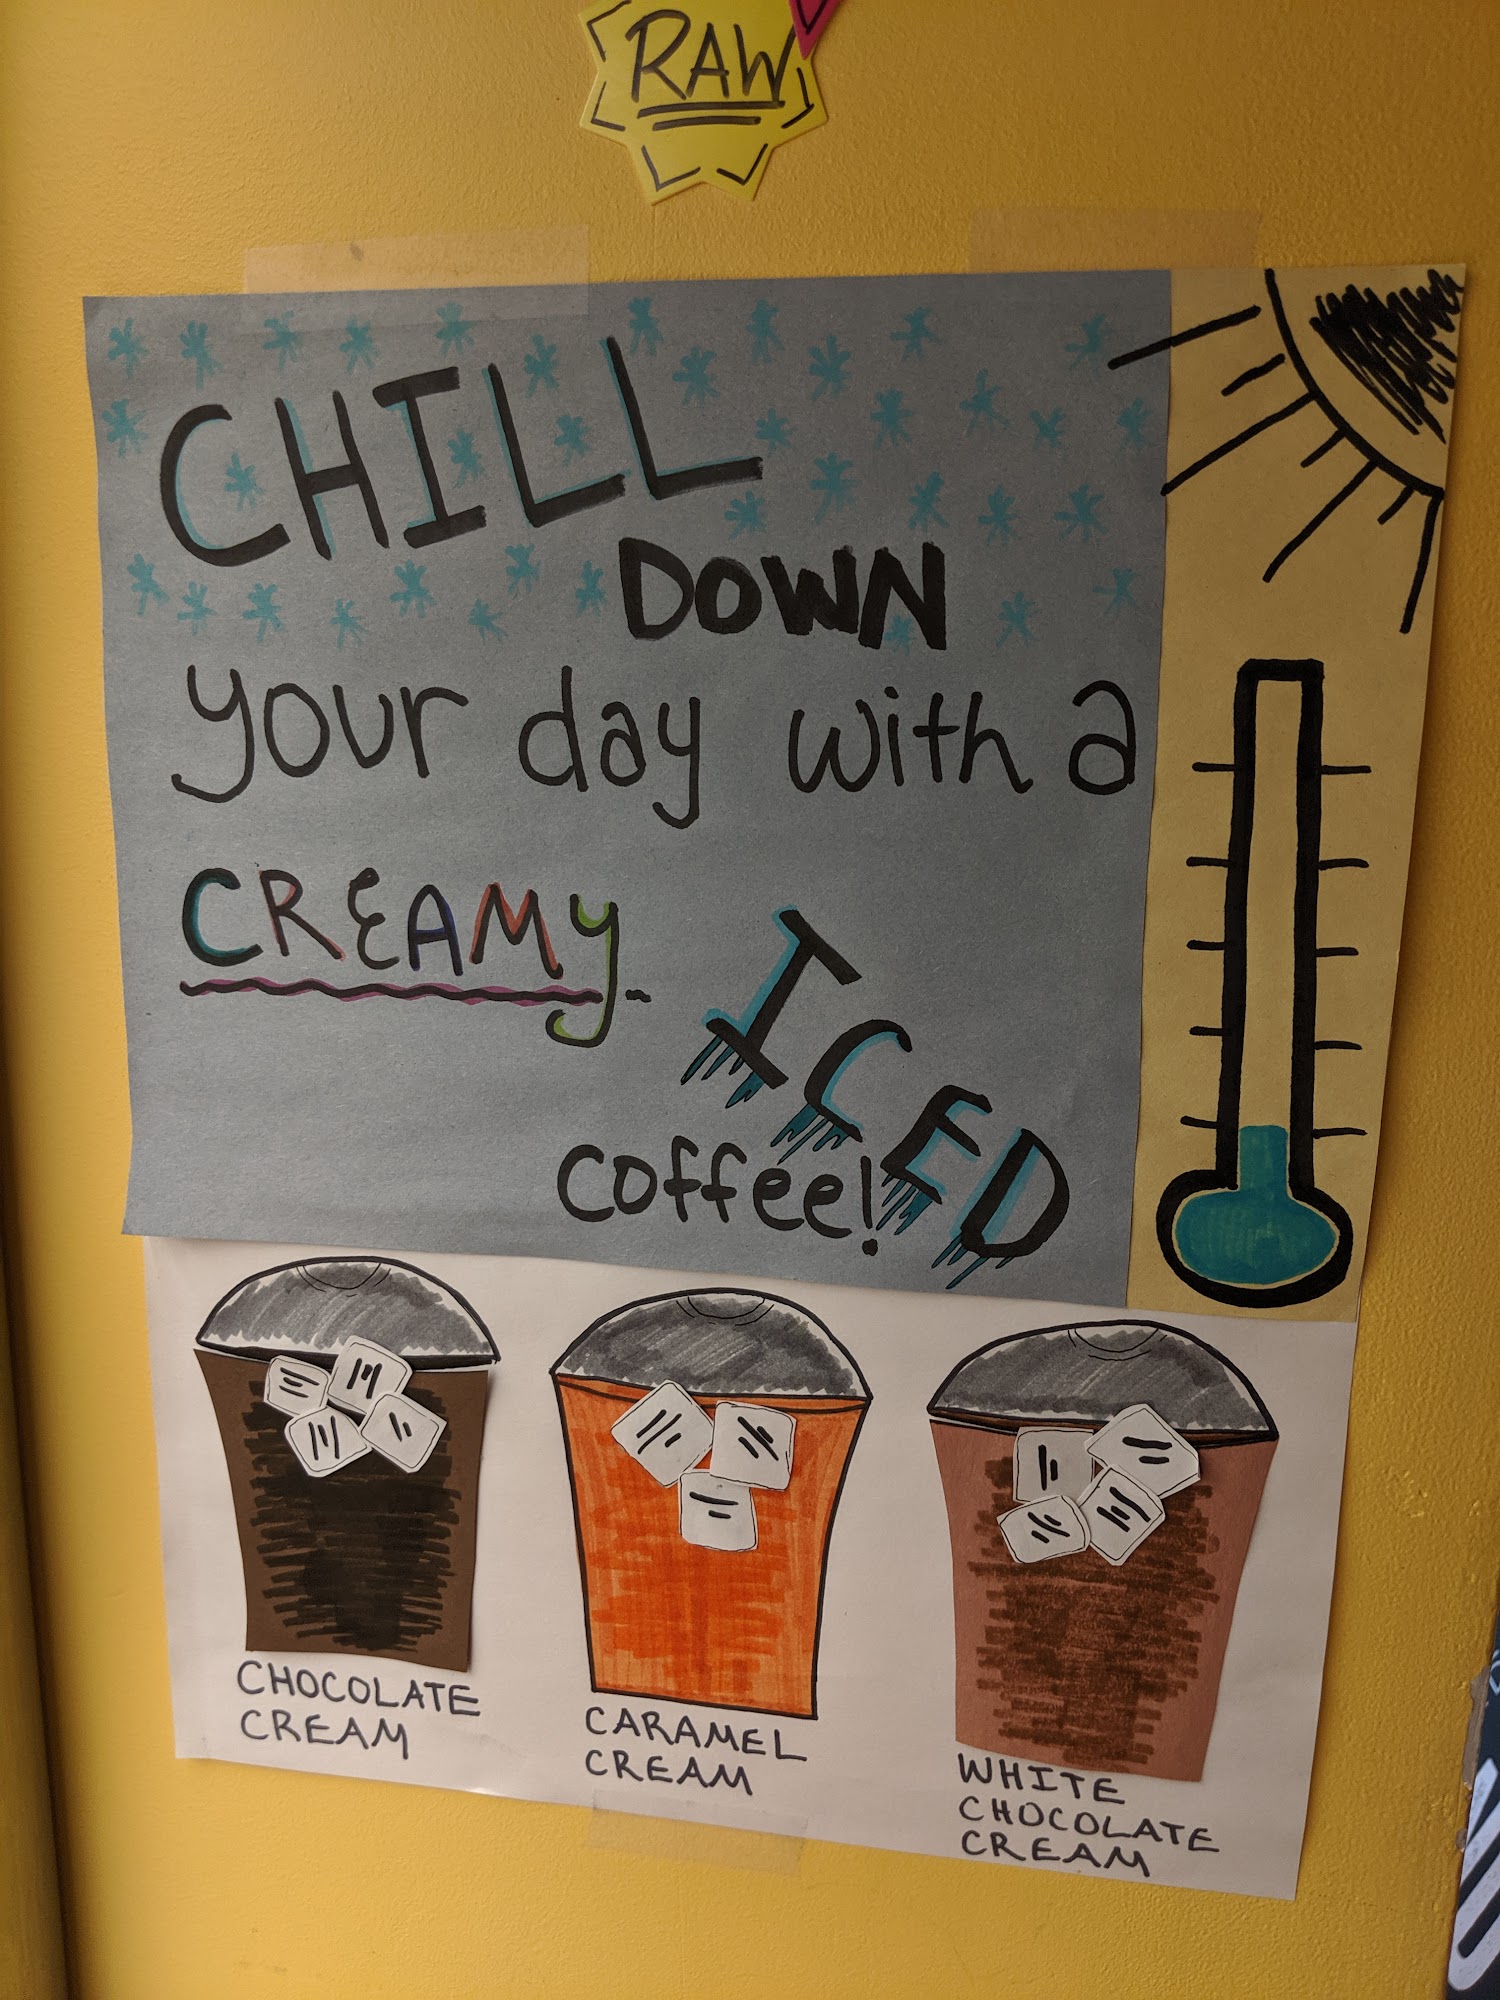 RAW
CHILL
DOWN
your day with a
CREAMY
ICED
coffee!
CHOCOLATE
CREAM
CARAMEL
CREAM
WHITE
CHOCOLATE
CREAM